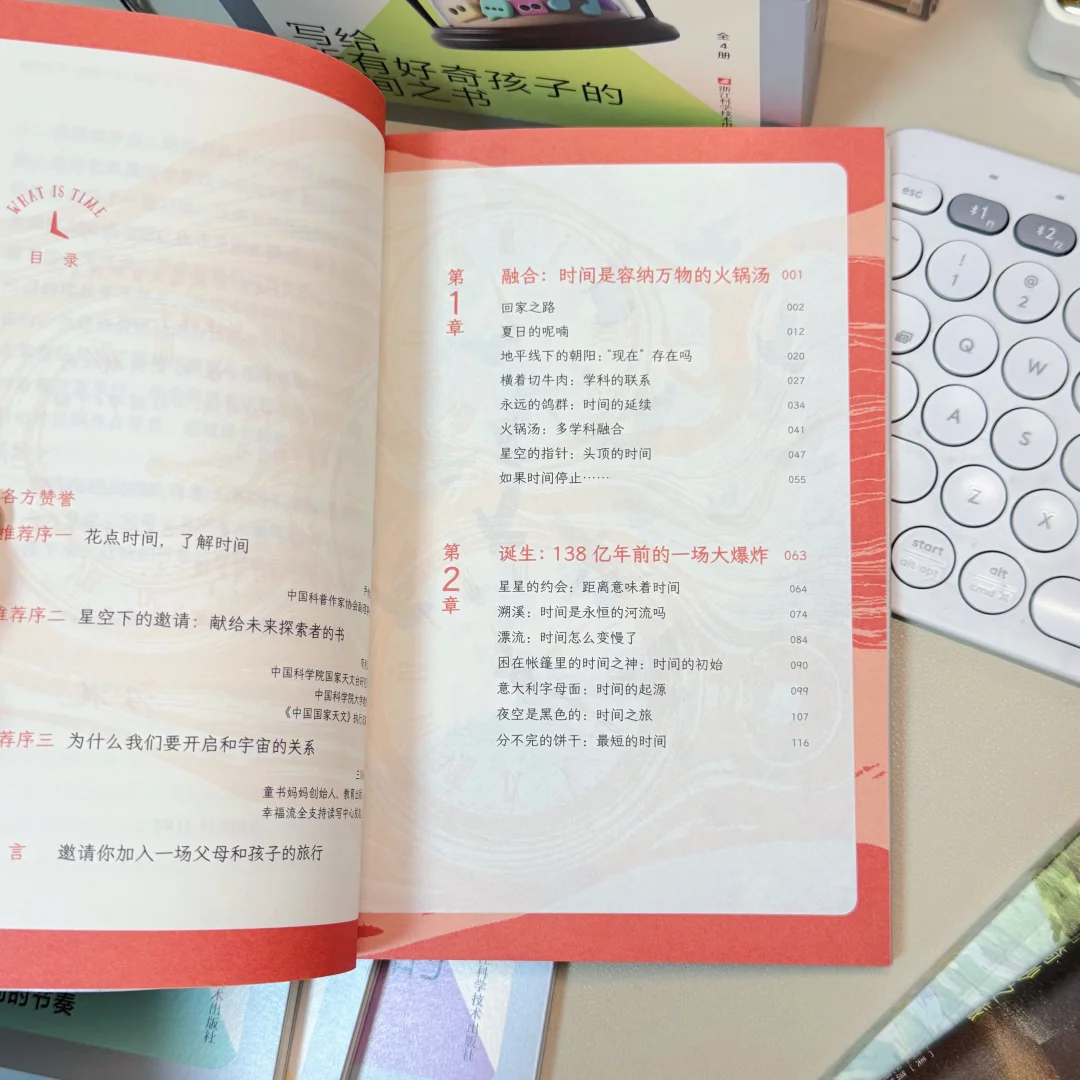 写给
有好奇孩子的
间之书
全4册
浙江科学技术出
WHAT IS TIME
目录
各方赞誉
推荐序一 花点时间，了解时间
中国科普作家协会
推荐序二 星空下的邀请：献给未来探索者的书
中国科学院国家天文台
中国科学院大学
《中国国家天文》执行
荐序三 为什么我们要开启和宇宙的关系
童书妈妈创始人、教育
幸福流全支持读写中心
言 邀请你加入一场父母和孩子的旅行
第1章 融合：时间是容纳万物的火锅汤 001
回家之路 002
夏日的呢喃 012
地平线下的朝阳：“现在”存在吗 020
横着切牛肉：学科的联系 027
永远的鸽群：时间的延续 034
火锅汤：多学科融合 041
星空的指针：头顶的时间 047
如果时间停止…… 055
第2章 诞生：138 亿年前的一场大爆炸 063
星星的约会：距离意味着时间 064
溯溪：时间是永恒的河流吗 074
漂流：时间怎么变慢了 084
困在帐篷里的时间之神：时间的初始 090
意大利字母面：时间的起源 099
夜空是黑色的：时间之旅 107
分不完的饼干：最短的时间 116
esc
1 F1
2 F2
! 1
@ 2
Q
W
A
S
Z
X
start
alt opt
alt
cmd
的节奏
术出版社
江科学技术出版社